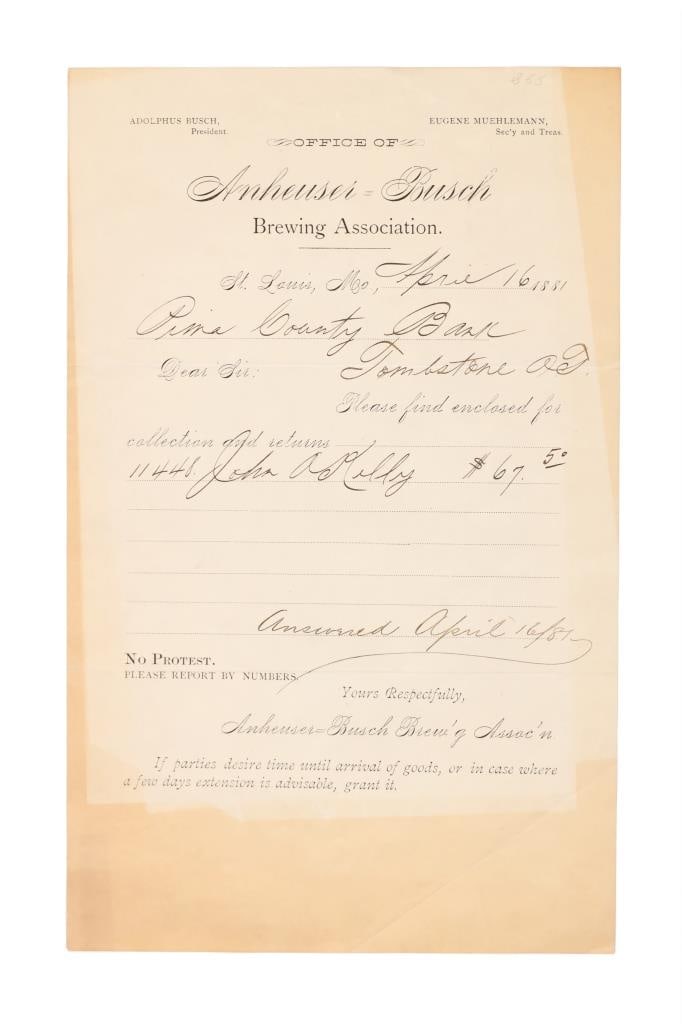 ADOLPHUS BUSCH,
President.
EUGENE MUEHLEMANN,
Sec'y and Treas.
OFFICE OF
Anheuser=Busch
Brewing Association.
St. Louis, Mo, April 16 1881
Pima County Bank
Dear Sir: Tombstone A.T.
Please find enclosed for
collection and returns
11448. John O'Kelly $67.50
Answered April 16/81
NO PROTEST.
PLEASE REPORT BY NUMBERS.
Yours Respectfully,
Anheuser=Busch Brew'g Assoc'n
If parties desire time until arrival of goods, or in case where
a few days extension is advisable, grant it.